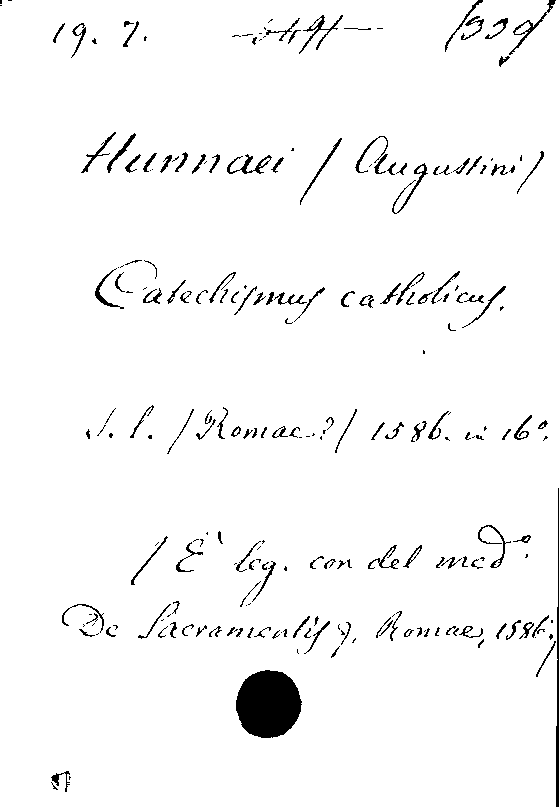 19. 7. 5491 (339)
Hunnaei / Augustini /
Catechismus catholicus.
S. l. / Romae? / 1586. in 16°.
/ È leg. con del med°.
De Sacramentis 7, Romae, 1586. /